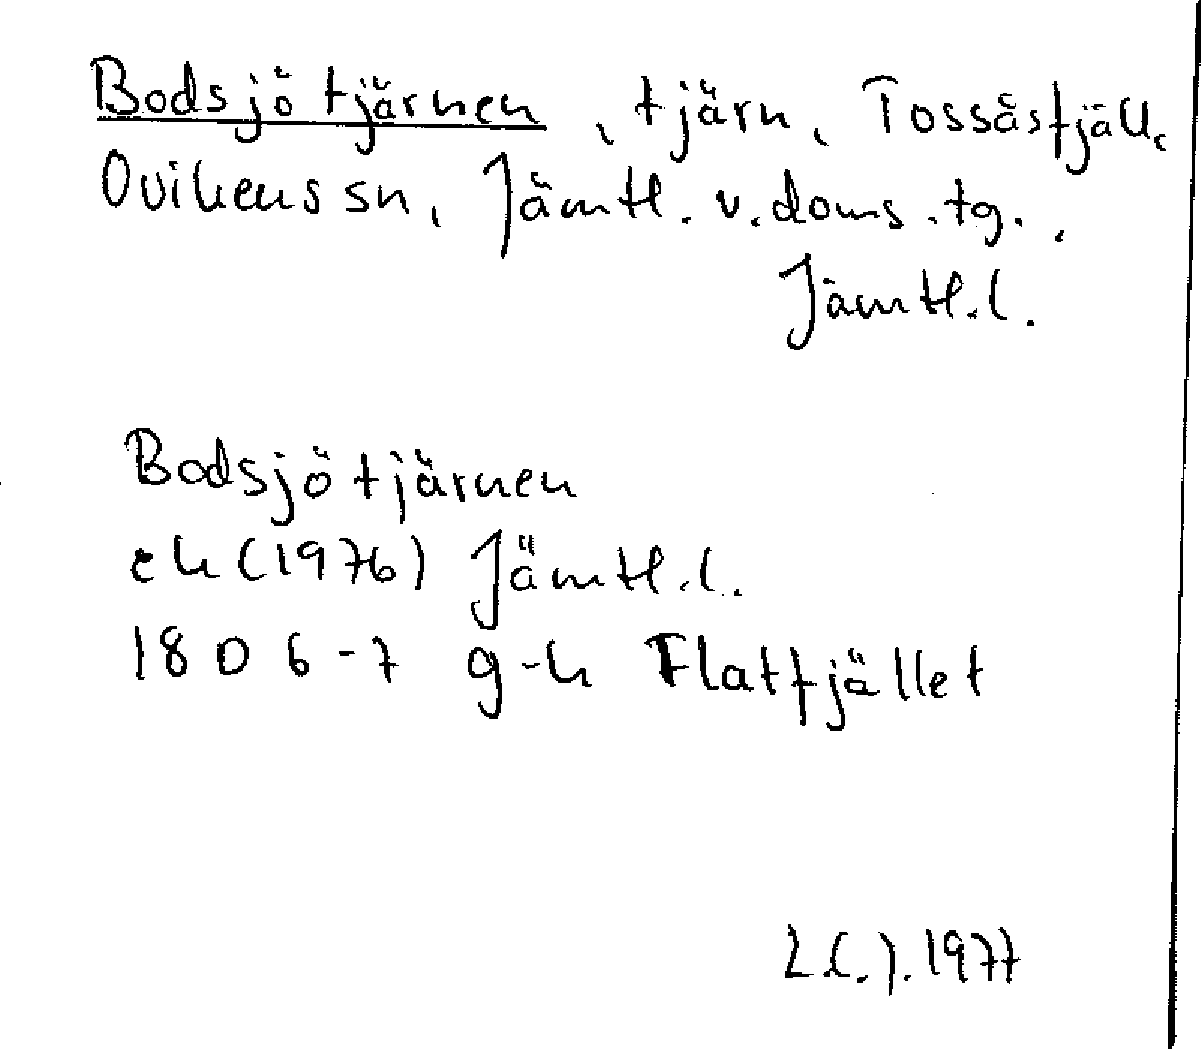 Bodsjötjärnen, tjärn, Tossåsfjäll,
Ovikens sn, Jämtl. v. doms.tg.,
Jämtl.l.
Bodsjötjärnen
ek (1976) Jämtl.l.
1806-7 g-h Flatfjället
L.C.J. 1977